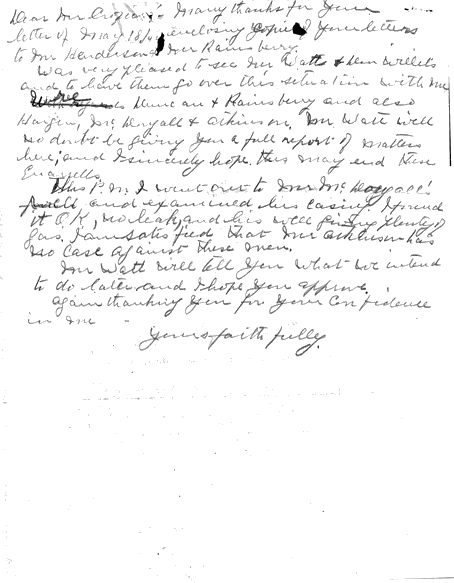 Dear Mr :- Many thanks for your
letter of May 18/ enclosing copies of your letters
to Mr Henderson & Mr Rainsberry.
Was very pleased to see Mr Watt & Mr Willets
and to have them go over this situation with me
Duncan & Rainsberry and also
Hargin, Mc Dougall & Atkinson. Mr Watt will
no doubt be giving you a full report of matters
here, and I sincerely hope this may end these
quarrels.
This P.M. I went out to Mr Mc Dougall's
and examined his casing. I found
it O.K, no leak, and his well giving plenty of
gas. I am satisfied that Mr Atkinson has
no case against these men.
Mr Watt will tell you what we intend
to do later and I hope you approve.
Again thanking you for your confidence
in me -
Yours faithfully.